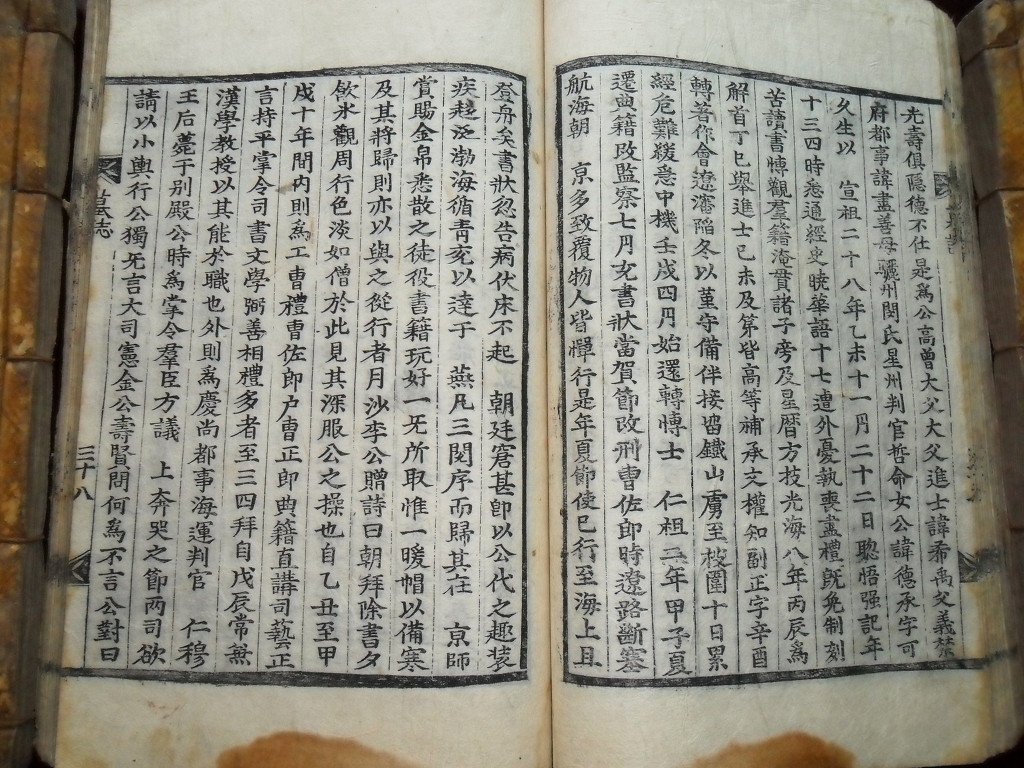 光壽俱隱德不仕是爲公高曾大父大父進士諱希禹父義禁
府都事諱盡善母驪州閔氏星州判官哲命女公諱德承字可
久生以　宣祖二十八年乙未十一月二十二日聰悟强記年
十三四時悉通經史曉華語十七遭外憂執喪盡禮旣免制刻
苦讀書博觀羣籍淹貫諸子旁及星曆方技光海八年丙辰爲
解首丁巳舉進士己未及第皆高等補承文權知副正字辛酉
轉著作會遼瀋陷冬以堇守備伴接留鐵山虜至被圍十日累
經危難緩急中機壬戌四月始還轉博士　仁祖二年甲子夏
遷典籍改監察七月充書狀當賀節改刑曹佐郎時遼路斷塞
航海朝　京多致覆物人皆憚行是年夏節使已行至海上且
登舟矣書狀忽告病伏床不起　朝廷窘甚卽以公代之趣装
疾趍泛渤海循青兖以達于　燕凡三閱序而歸其在　京師
賞賜金帛悉散之徒役書籍玩好一无所取惟一暖帽以備寒
及其將歸則亦以與之從行者月沙李公贈詩曰朝拜除書夕
飮氷觀周行色淡如僧於此見其深服公之操也自乙丑至甲
戌十年間內則爲工曹禮曹佐郎户曹正郎典籍直講司藝正
言持平掌令司書文學弼善相禮多者至三四拜自戊辰常兼
漢學教授以其能於職也外則爲慶尚都事海運判官　仁穆
王后薨于别殿公時爲掌令羣臣方議　上奔哭之節兩司欲
請以小輿行公獨无言大司憲金公壽賢問何爲不言公對曰
墓志
三十八